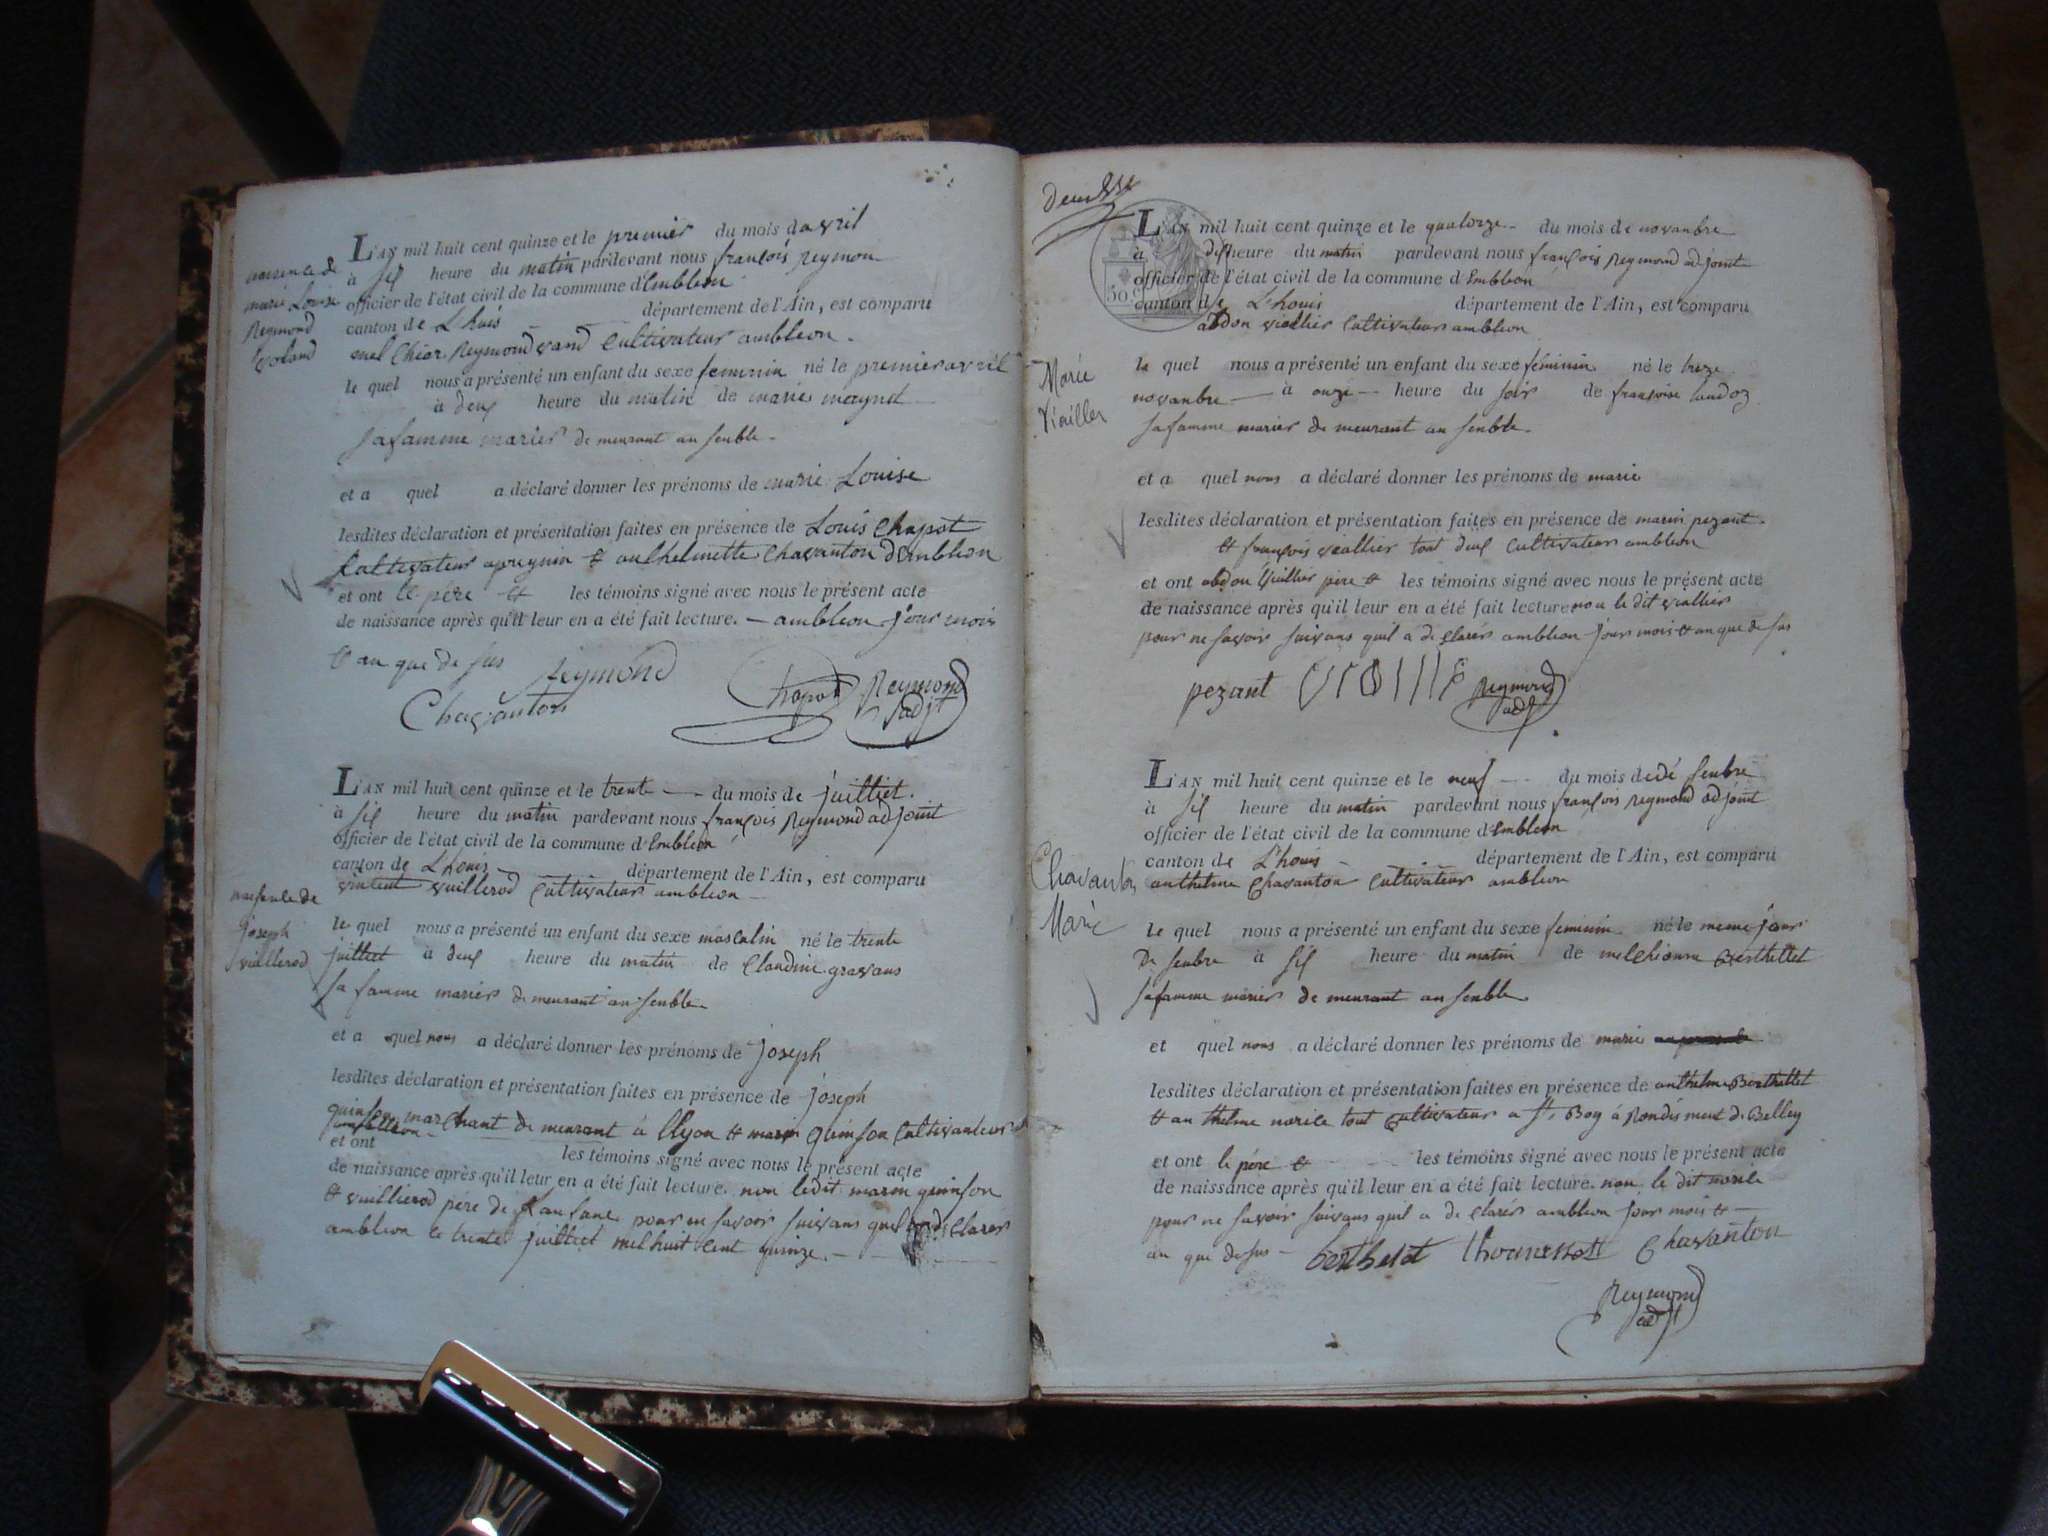 naisence de
marie Louise
Reymond
L'AN mil huit cent quinze et le premier du mois davril
à sis heure du matin pardevant nous françois reymon
officier de l'état civil de la commune d'Embleon
canton de L'huis département de l'Ain, est comparu
melchior Reymond cultivateur ambleon.
le quel nous a présenté un enfant du sexe feminin né le premier avril
à deus heure du matin de marie maynet
sa famme marier de meurant an senble.
et a quel a déclaré donner les prénoms de marie Louise
lesdites déclaration et présentation faites en présence de Louis Chapot
Cultivateur apreynin et anthelmette Chavanton d'Embleon
et ont le père et les témoins signé avec nous le présent acte
de naissance après qu'il leur en a été fait lecture. ambleon jour mois
et an que de sus Reymond
Chavanton Chapot Reymond
adjt
naisence de
joseph
viallerod
L'AN mil huit cent quinze et le trente du mois de juilliet.
à sis heure du matin pardevant nous françois Reymond adjoint
officier de l'état civil de la commune d'Embleon
canton de L'houis département de l'Ain, est comparu
vuillerod cultivateur ambleon
le quel nous a présenté un enfant du sexe masculin né le trente
juilliet à deus heure du matin de Claudine gravans
sa famme marier de meurant an senble
et a quel nous a déclaré donner les prénoms de joseph
lesdites déclaration et présentation faites en présence de joseph
quinson marchant de meurant à llyon et marin quinson Cultivanteur
ambleon
et ont les témoins signé avec nous le présent acte
de naissance après qu'il leur en a été fait lecture. non ledit marin quinson
et vuillierod père de pour ne savoir suivans quel on declarer
ambleon le trente juilliet mil huit cent quinze.
L'AN mil huit cent quinze et le quatorze du mois de novanbre
à dis heure du matin pardevant nous françois Reymond adjoint
officier de l'état civil de la commune d'Embleon
50 C
canton de L'houis département de l'Ain, est comparu
abdon viallier Cultivateur ambleon
Marie
Viallier
le quel nous a présenté un enfant du sexe feminin né le treze
novanbre à onze heure du soir de françoise
sa famme marier de meurant an senble.
et a quel nous a déclaré donner les prénoms de marie
lesdites déclaration et présentation faites en présence de marin pezant.
et françois viallier tout deus cultivateur ambleon
et ont abdon viallier père et les témoins signé avec nous le présent acte
de naissance après qu'il leur en a été fait lecture non le dit viallier
pour ne savoir suivans quil a de clarér ambleon jour mois et an que de sus
pezant Reymond
adjt
L'AN mil huit cent quinze et le neuf du mois de dé senbre
à sis heure du matin pardevant nous françois Reymond adjoint
officier de l'état civil de la commune d'Embleon
canton de L'houis département de l'Ain, est comparu
anthelme Chavanton Cultivateur ambleon
Chavanton
Marie
le quel nous a présenté un enfant du sexe feminin né le meme jour
De senbre à sis heure du matin de melchionne Berthellet
sa famme marier de meurant an senble
et quel nous a déclaré donner les prénoms de marie
lesdites déclaration et présentation faites en présence de anthelme Berthellet
et an thelme tout Cultivateur a St Boy à Rondis ment de Belley
et ont le père et les témoins signé avec nous le présent acte
de naissance après qu'il leur en a été fait lecture. non le dit
pour ne savoir suivans quil a de clarér ambleon jour mois et
an que de sus berthelet Chavanton
Reymond
adjt